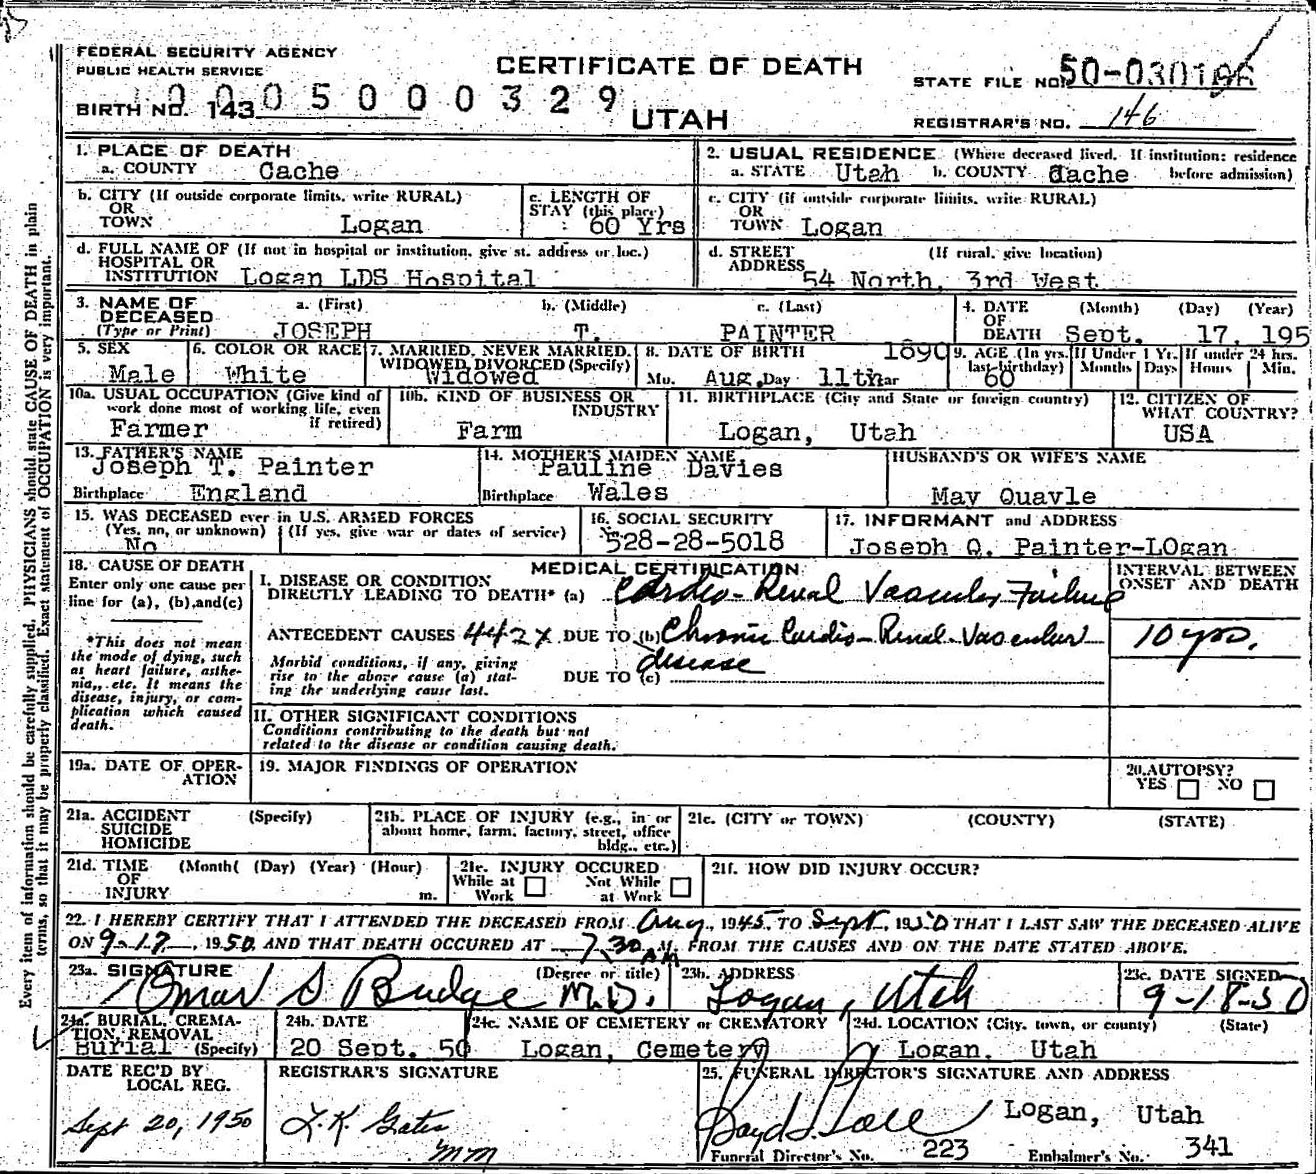 FEDERAL SECURITY AGENCY
PUBLIC HEALTH SERVICE
CERTIFICATE OF DEATH
STATE FILE NO. 50-0301
BIRTH NO. 143 0005000329
UTAH
REGISTRAR'S NO. 146
1. PLACE OF DEATH
a. COUNTY Cache
2. USUAL RESIDENCE (Where deceased lived. If institution: residence before admission)
a. STATE Utah b. COUNTY Cache
b. CITY (If outside corporate limits, write RURAL)
OR TOWN Logan
c. LENGTH OF STAY (this place) 60 Yrs
c. CITY (if outside corporate limits, write RURAL)
OR TOWN Logan
d. FULL NAME OF (If not in hospital or institution, give st. address or loc.)
HOSPITAL OR INSTITUTION Logan LDS Hospital
d. STREET ADDRESS (If rural, give location)
54 North, 3rd West
3. NAME OF DECEASED (Type or Print)
a. (First) JOSEPH b. (Middle) T. c. (Last) PAINTER
4. DATE OF DEATH (Month) (Day) (Year)
Sept. 17, 195
5. SEX Male
6. COLOR OR RACE White
7. MARRIED, NEVER MARRIED, WIDOWED, DIVORCED (Specify) Widowed
8. DATE OF BIRTH 1890
Mo. Aug. Day 11th Year
9. AGE (In yrs. last birthday) 60
If Under 1 Yr. Months Days
If under 24 hrs. Hours Min.
10a. USUAL OCCUPATION (Give kind of work done most of working life, even if retired)
Farmer
10b. KIND OF BUSINESS OR INDUSTRY
Farm
11. BIRTHPLACE (City and State or foreign country)
Logan, Utah
12. CITIZEN OF WHAT COUNTRY?
USA
13. FATHER'S NAME
Joseph T. Painter
Birthplace England
14. MOTHER'S MAIDEN NAME
Pauline Davies
Birthplace Wales
HUSBAND'S OR WIFE'S NAME
May Quayle
15. WAS DECEASED ever in U.S. ARMED FORCES
(Yes, no, or unknown) (If yes, give war or dates of service)
No
16. SOCIAL SECURITY
528-28-5018
17. INFORMANT and ADDRESS
Joseph Q. Painter-LOgan
18. CAUSE OF DEATH
Enter only one cause per line for (a), (b), and (c)
*This does not mean the mode of dying, such as heart failure, asthenia, etc. It means the disease, injury, or complication which caused death.
MEDICAL CERTIFICATION
INTERVAL BETWEEN ONSET AND DEATH
I. DISEASE OR CONDITION DIRECTLY LEADING TO DEATH* (a) Cardio-Renal Vascular Failure
ANTECEDENT CAUSES 442X DUE TO (b) Chronic Cardio-Renal-Vascular disease 10 yrs.
Morbid conditions, if any, giving rise to the above cause (a) stating the underlying cause last.
DUE TO (c)
II. OTHER SIGNIFICANT CONDITIONS
Conditions contributing to the death but not related to the disease or condition causing death.
19a. DATE OF OPERATION
19. MAJOR FINDINGS OF OPERATION
20. AUTOPSY?
YES NO
21a. ACCIDENT SUICIDE HOMICIDE (Specify)
21b. PLACE OF INJURY (e.g., in or about home, farm, factory, street, office bldg., etc.)
21c. (CITY or TOWN) (COUNTY) (STATE)
21d. TIME OF INJURY (Month( (Day) (Year) (Hour) m.
21e. INJURY OCCURED
While at Work Not While at Work
21f. HOW DID INJURY OCCUR?
22. I HEREBY CERTIFY THAT I ATTENDED THE DECEASED FROM Aug., 1945 TO Sept, 1950 THAT I LAST SAW THE DECEASED ALIVE
ON 9-17, 1950, AND THAT DEATH OCCURED AT 7:30 AM M. FROM THE CAUSES AND ON THE DATE STATED ABOVE.
23a. SIGNATURE (Degree or title)
Omar S Budge M.D.
23b. ADDRESS
Logan, Utah
23c. DATE SIGNED
9-18-50
24a. BURIAL, CREMATION REMOVAL (Specify)
Burial
24b. DATE
20 Sept. 50
24c. NAME OF CEMETERY or CREMATORY
Logan, Cemetery
24d. LOCATION (City, town, or county) (State)
Logan, Utah
DATE REC'D BY LOCAL REG.
Sept 20, 1950
REGISTRAR'S SIGNATURE
L.K. Gates
mm
25. FUNERAL DIRECTOR'S SIGNATURE AND ADDRESS
Logan, Utah
Funeral Director's No. 223 Embalmer's No. 341
Every item of information should be carefully supplied. PHYSICIANS should state CAUSE OF DEATH in plain
terms, so that it may be properly classified. Exact statement of OCCUPATION is very important.